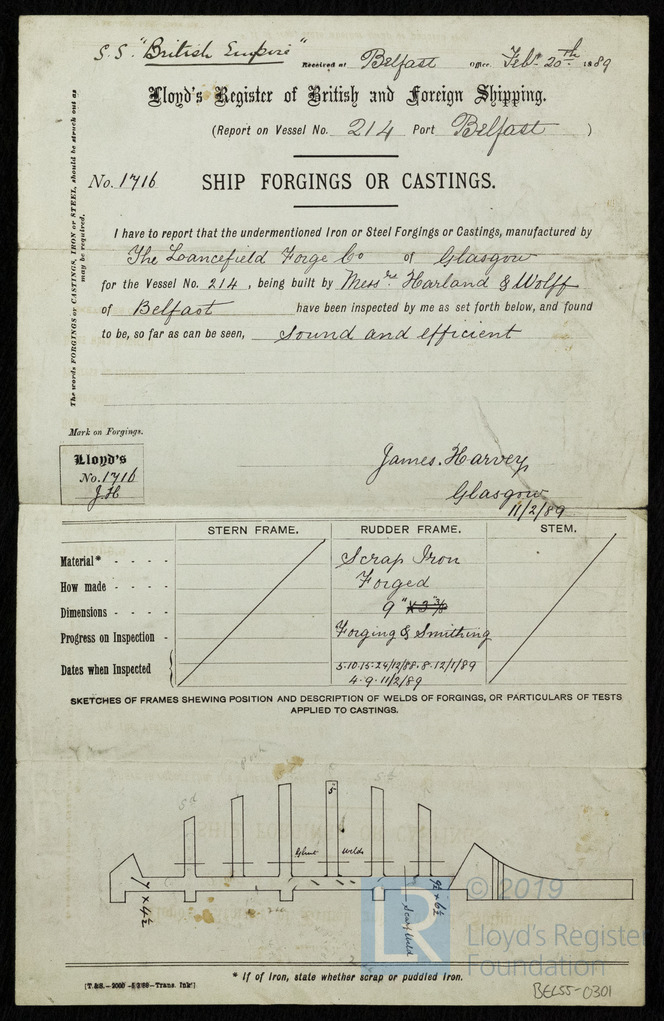 S.S. "British Empire"
Received at Belfast Office Feby. 20th 1889
Lloyd's Register of British and Foreign Shipping.
(Report on Vessel No. 214 Port Belfast )
No. 1716 SHIP FORGINGS OR CASTINGS.
The words FORGINGS or CASTINGS, IRON or STEEL, should be struck out as
may be required.
I have to report that the undermentioned Iron or Steel Forgings or Castings, manufactured by
The Lancefield Forge Co of Glasgow
for the Vessel No. 214, being built by Messrs. Harland & Wolff
of Belfast have been inspected by me as set forth below, and found
to be, so far as can be seen, Sound and efficient
Mark on Forgings.
Lloyd's
No. 1716
J.H
James. Harvey
Glasgow
11/2/89
STERN FRAME. RUDDER FRAME. STEM.
Material* - - - - Scrap Iron
How made - - - - Forged
Dimensions - - - - 9" x 3 3/8
Progress on Inspection - Forging & Smithing
Dates when Inspected 5·10·15·24/12/88·8·12/1/89
4·9·11/2/89
SKETCHES OF FRAMES SHEWING POSITION AND DESCRIPTION OF WELDS OF FORGINGS, OR PARTICULARS OF TESTS
APPLIED TO CASTINGS.
5
Glut Welds
7 x 4½
9½ x 6½
Scarf Weld
© 2019
LR
Lloyd's Register
Foundation
* If of Iron, state whether scrap or puddled iron.
BEL55-0301